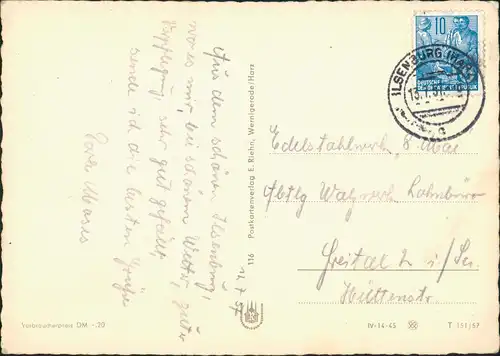 Aus dem schönen Ilsenburg,
wo es mir bei schönem Wetter, guter
Verpflegung sehr gut gefällt,
sende ich die besten Grüße
11.7.57
116 Postkartenverlag E. Riehn, Wernigerode/Harz
Verbraucherpreis DM -.20
10
ILSENBURG (HARZ)
DEUTSCHE
Edelstahlwerk 8. Mai
Abtlg Walzwerk Lohnbüro
Freital 2 i/Sa.
Hüttenstr.
IV-14-45
T 151/57